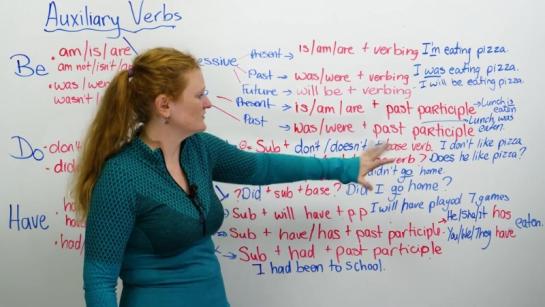 Auxiliary Verbs
Be
am/is/are
am not/isn't/
was/we
wasn't/
essive
Present → is/am/are + verbing I'm eating pizza.
Past → was/were + verbing I was eating pizza.
Future → will be + verbing I will be eating pizza.
Present → is/am/are + past participle → Lunch is eaten
Past → was/were + past participle → Lunch was eaten.
Do
don
did
Sub + don't/doesn't + base verb. I don't like pizza
verb? Does he like pizza?
didn't go home.
? Did + sub + base? Did I go home?
Have
ha
ha
had/
Sub + will have + p.p I will have played 7 games
Sub + have/has + past participle He/She/it has eaten.
You/We/They have
Sub + had + past participle
I had been to school.